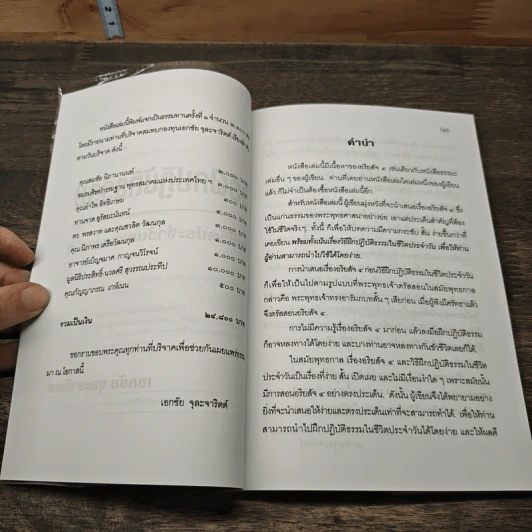 หนังสือเล่มนี้พิมพ์แจกเป็นธรรมทานครั้งที่ ๑ จำนวน ๒,๐๐๐ เล่ม
โดยมีรายนามท่านที่บริจาคสมทบกองทุนเอกชัย จุละจาริตต์ เรียงลำดับ
ตามวันบริจาค ดังนี้.-
คุณสมชัย นิดานานนท์ ๒,๐๐๐ บาท
ชมรมศิษย์กรรมฐาน พุทธสมาคมแห่งประเทศไทย ๓,๐๐๐ บาท
คุณอำไพ อิทธิเกษม ๓๐๐ บาท
ท่านจาด อุรัสยะนันทน์ ๕,๐๐๐ บาท
ดร. พรสวาท และคุณชวลิต วัฒนกุล ๓,๐๐๐ บาท
คุณนิภาพร เตรีย์วัฒนกุล ๑,๐๐๐ บาท
๑,๐๐๐ บาท
๑๐,๐๐๐ บาท
๕๐๐ บาท
รวมเป็นเงิน ๒๔,๘๐๐ บาท
ขอกราบขอบพระคุณทุกท่านที่บริจาคเพื่อช่วยกันเผยแพร่ธรรม
มา ณ โอกาสนี้.
เอกชัย จุละจาริตต์
คำนำ
หนังสือเล่มนี้มีเนื้อหาของอริยสัจ ๔ เช่นเดียวกับหนังสือธรรมะ
เล่มอื่น ๆ ของผู้เขียน. ท่านที่เคยอ่านหนังสือเล่มใดเล่มหนึ่งของผู้เขียน
แล้ว ก็ไม่จำเป็นต้องซื้อหนังสือเล่มนี้อีก.
สำหรับหนังสือเล่มนี้ ผู้เขียนมุ่งหวังที่จะนำเสนอเรื่องอริยสัจ ๔ ซึ่ง
เป็นแก่นธรรมของพระพุทธศาสนาอย่างย่อ เอาแต่ประเด็นสำคัญที่ต้อง
ใช้ในชีวิตจริง ๆ. ทั้งนี้ ก็เพื่อให้บทความมีความกระชับ สั้น ง่ายขึ้นกว่าที่
เคยเขียน พร้อมทั้งเน้นเรื่องวิธีฝึกปฏิบัติธรรมในชีวิตประจำวัน เพื่อให้ท่าน
ผู้อ่านสามารถนำไปใช้ได้โดยง่าย.
การนำเสนอเรื่องอริยสัจ ๔ ก่อนวิธีฝึกปฏิบัติธรรมในชีวิตประจำวัน
ก็เพื่อให้เป็นไปตามรูปแบบที่พระพุทธเจ้าตรัสสอนในสมัยพุทธกาล
กล่าวคือ พระพุทธเจ้าทรงอารัมภบทสั้น ๆ เสียก่อน เมื่อผู้ฟังมีศรัทธาแล้ว
จึงตรัสสอนอริยสัจ ๔.
การไม่มีความรู้เรื่องอริยสัจ ๔ มาก่อน แล้วลงมือฝึกปฏิบัติธรรม
ก็อาจหลงทางได้โดยง่าย และบางท่านอาจหลงทางกันชั่วชีวิตเลยก็ได้.
ในสมัยพุทธกาล เรื่องอริยสัจ ๔ และวิธีฝึกปฏิบัติธรรมในชีวิต
ประจำวันเป็นเรื่องที่ง่าย สั้น เปิดเผย และไม่มีเงื่อนงำใด ๆ เพราะสมัยนั้น
มีการสอนอริยสัจ ๔ อย่างตรงประเด็น. ดังนั้น ผู้เขียนจึงได้พยายามอย่าง
ยิ่งที่จะนำเสนอให้ง่ายและตรงประเด็นเท่าที่จะสามารถทำได้. เพื่อให้ท่าน
สามารถนำไปฝึกปฏิบัติธรรมในชีวิตประจำวันได้โดยง่าย และให้ผลดี